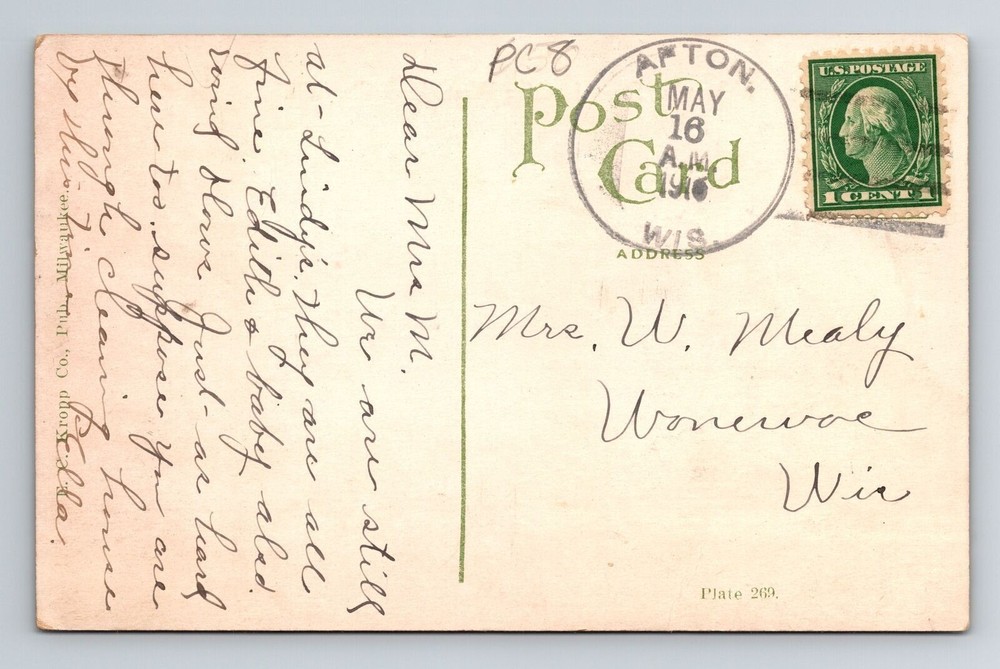 PC 8
Post
Card
AFTON.
MAY
16
A.M.
WIS.
U.S. POSTAGE
1 CENT 1
ADDRESS
Mrs. W. Mealy
Wonewoc
Wis
Plate 269.
Dear Mrs M.
We are still
at Lindy's. They are all
fine. Edith & baby also.
raining Just as hard
here too. suppose you are
through cleaning house
by this time
Kropp Co., Pub., Milwaukee.